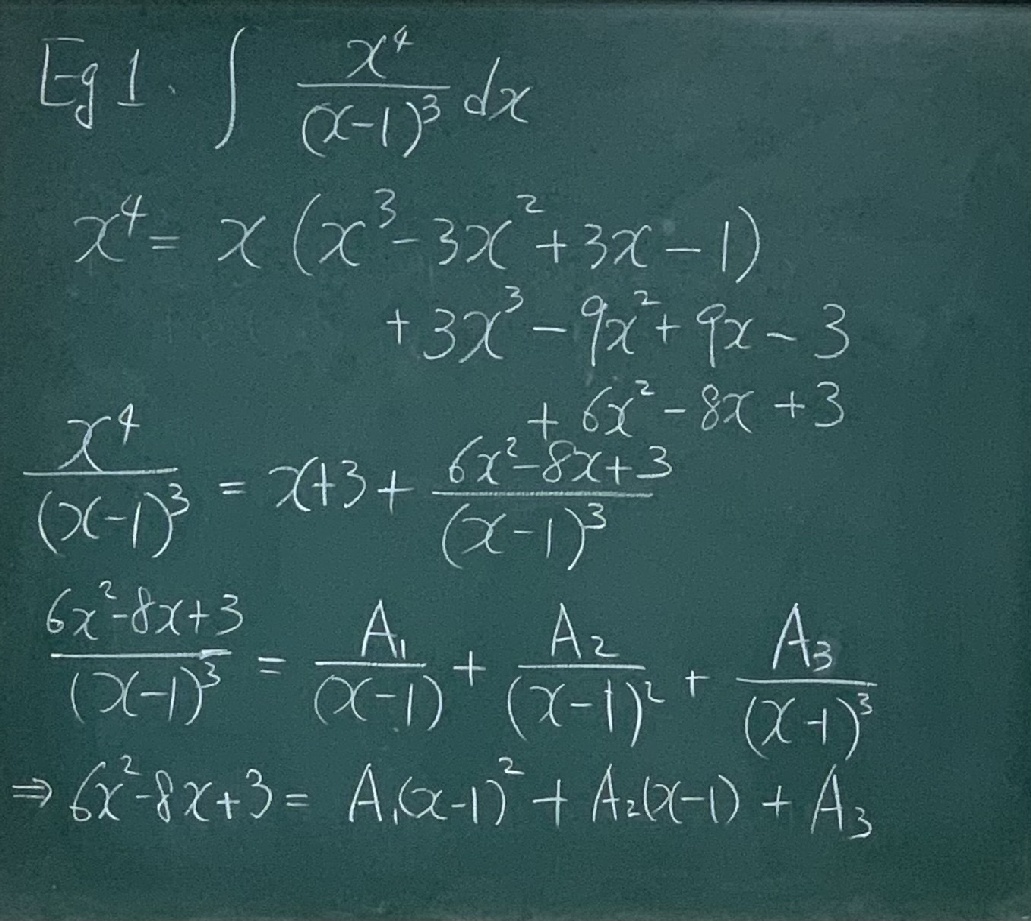 Eg 1. ∫ x⁴/(x-1)³ dx
x⁴ = x (x³-3x²+3x-1)
+3x³-9x²+9x-3
+6x²-8x+3
x⁴/(x-1)³ = x+3+ (6x²-8x+3)/(x-1)³
(6x²-8x+3)/(x-1)³ = A₁/(x-1) + A₂/(x-1)² + A₃/(x-1)³
⇒ 6x²-8x+3 = A₁(x-1)² + A₂(x-1) + A₃